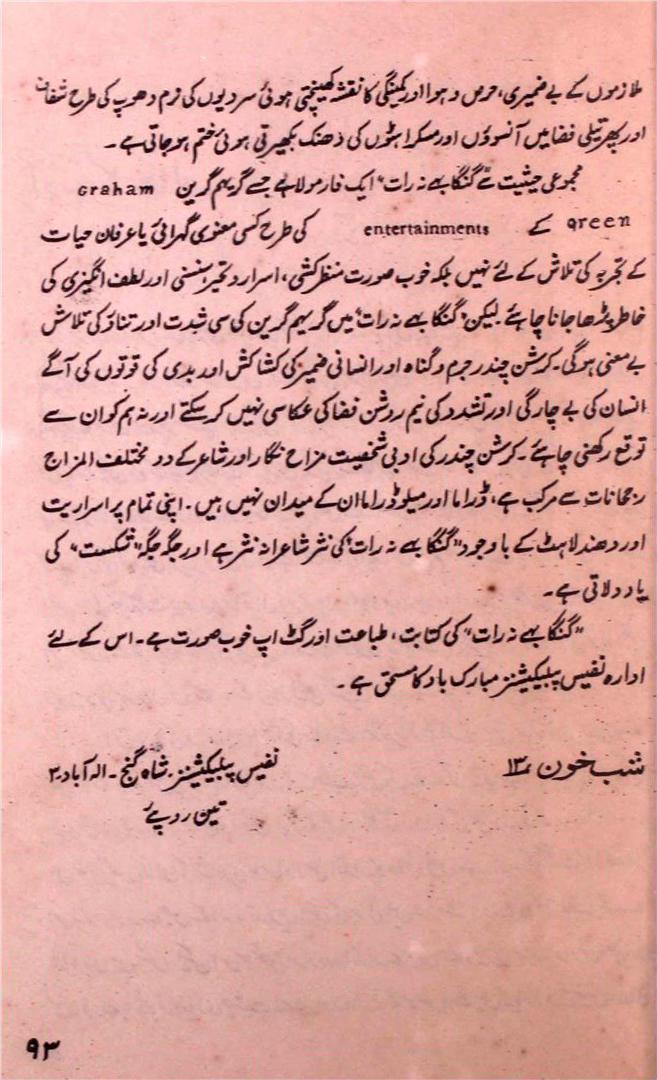 ملازموں کے بے ضمیری، حرص و ہوا اور کمینگی کا نقشہ کھینچتی ہوئی سردیوں کی نرم دھوپ کی طرح شفاف
اور پھر تیلی فضا میں آنسوؤں اور مسکراہٹوں کی دھنک بکھیرتی ہوئی ختم ہو جاتی ہے۔
مجموعی حیثیت سے "گنگا بہے نہ رات" ایک فارمولا ہے جسے گریہم گرین graham
green کے entertainments کی طرح کسی معنوی گہرائی یا عرفان حیات
کے تجربہ کی تلاش کے لئے نہیں بلکہ خوب صورت منظر کشی، اسرار و تحیر، سنسنی اور لطف انگیزی کی
خاطر پڑھا جانا چاہئے لیکن "گنگا بہے نہ رات" میں گریہم گرین کی سی شدت اور تناؤ کی تلاش
بے معنی ہوگی۔ کرشن چندر جرم و گناہ اور انسانی ضمیر کی کشاکش اور بدی کی قوتوں کی آگے
انسان کی بے چارگی اور تشدد کی نیم روشن فضا کی عکاسی نہیں کر سکتے اور نہ ہم کو ان سے
توقع رکھنی چاہئے۔ کرشن چندر کی ادبی شخصیت مزاح نگار اور شاعر کے دو مختلف المزاج
رجحانات سے مرکب ہے، ڈراما اور میلو ڈراما ان کے میدان نہیں ہیں۔ اپنی تمام پر اسراریت
اور دھندلاہٹ کے باوجود "گنگا بہے نہ رات" کی نثر شاعرانہ نثر ہے اور جگہ جگہ "شکست" کی
یاد دلاتی ہے۔
"گنگا بہے نہ رات" کی کتابت، طباعت اور گٹ اپ خوب صورت ہے۔ اس کے لئے
ادارہ نفیس پبلیکیشنز مبارک باد کا مستحق ہے۔
نفیس پبلیکیشنز، شاہ گنج۔ الہ آباد۔۳
تین روپئے
شب خون ۱۳ء
۹۳